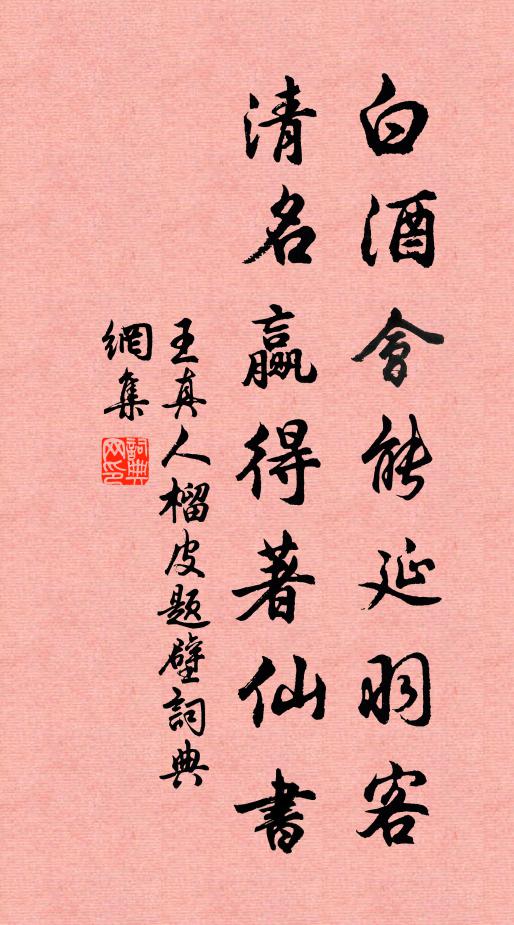 白酒會能延羽客
清名贏得著仙書
王真人榴皮題壁詞典
網集
詞典網印